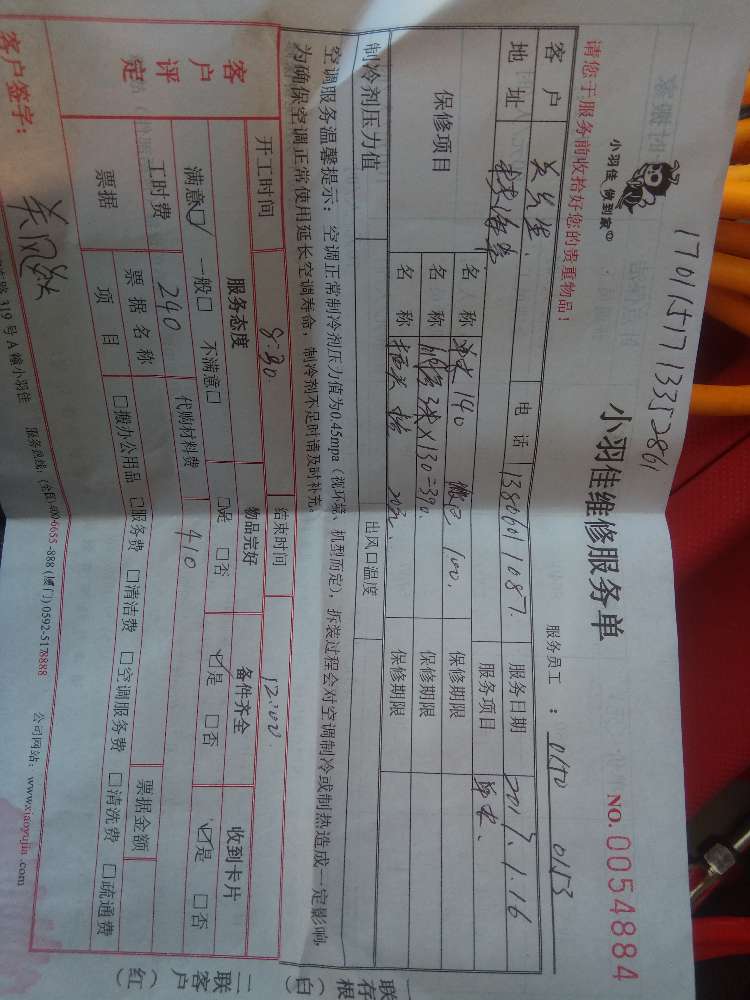 1701151713352861
小羽佳 做到家
小羽佳维修服务单
NO.0054884
请您于服务前收拾好您的贵重物品！
服务员工：0150 0153
客户 电话 13806011087 服务日期 2017.1.16
地址 服务项目
保修项目 名称 140 100. 保修期限
名称 3米×130=390. 保修期限
名称 保修期限
制冷剂压力值 出风口温度
空调服务温馨提示：空调正常制冷剂压力值为0.45mpa（视环境、机型而定），拆装过程会对空调制冷或制热造成一定影响，
为确保空调正常使用延长空调寿命，制冷剂不足时请及时补充。
开工时间 8:30 结束时间 12:00
客户评定
服务态度 物品完好 备件齐全 收到卡片
满意☑ 一般□ 不满意□ □是 □否 ☑是 □否 ☑是 □否
工时费 240 代购材料费 410
票据 票据名称 票据金额
项目 □搬办公用品 □服务费 □清洁费 □空调服务费 □清洗费 □疏通费
客户签字：
路319号A幢小羽佳 服务热线：(全国)400-6655-888 (厦门)0592-5178888 公司网站：www.xiaoyujia.com
一联存根（白）
二联客户（红）